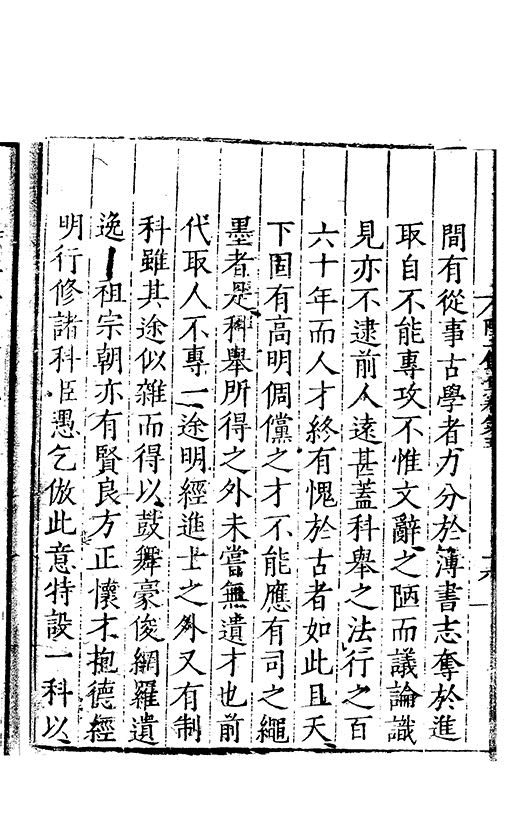 間有從事古學者力分於簿書志奪於進
取自不能專攻不惟文辭之陋而議論識
見亦不逮前人遠甚蓋科舉之法行之百
六十年而人才終有愧於古者如此且天
下固有高明倜儻之才不能應有司之繩
墨者是科舉所得之外未嘗無遺才也前
代取人不專一途明經進士之外又有制
科雖其途似雜而得以鼓舞豪俊網羅遺
逸祖宗朝亦有賢良方正懷才抱德經
明行修諸科臣愚乞倣此意特設一科以